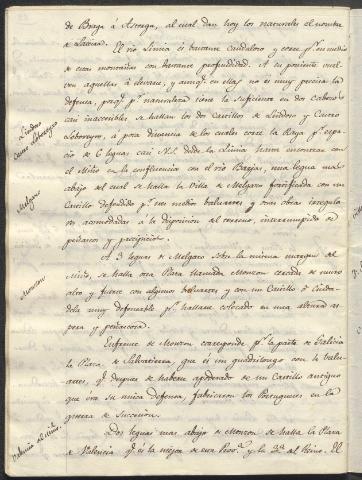 de Braga á Astorga, al cual dan hoy los naturales el nombre
de
El rio Limia es bastante caudaloso y corre pr. en medio
de unas montañas con bastante profundidad. A su poniente vuel-
ven aquellas á elevarse, y aunqe. en ellas no es muy precisa la
defensa, porqe. pr. naturaleza tiene la suficiente en dos cabezos
casi inaccesibles se hallan los dos Castillos de Lindoso y Castro
Lindoso
Castro Laboreyro
Laboreyro, á poca distancia de los cuales corre la Raya pr. espa-
cio de 6 leguas casi N.S. desde la Limia hasta encontrar con
el Miño en la confluencia con el rio Barjas, una legua mas
abajo del cual se halla la Villa de Melgazo fortificada con un
Melgazo
Castillo defendido pr. tres medios baluartes y otras obras irregula-
res acomodadas á la disposicion del terreno, interrumpido de
peñascos y precipicios.
A 3 leguas de Melgazo sobre la misma margen del
Miño, se halla otra Plaza llamada Monzon cercada de muro
Monzon
alto y fuerte con algunos baluartes y con un Castillo ó Ciuda-
dela muy defensable pr. hallarse colocado en una altura ás-
pera y peñascosa.
Enfrente de Monzon corresponde pr. la parte de Galicia
la Plaza de Salvatierra, que es un quadrilongo con 4 balu-
artes, qe. despues de haberse apoderado de un Castillo antiguo
que era su unica defensa, fabricaron los Portugueses en la
guerra de Succesion.
Dos leguas mas abajo de Monzon se halla la Plaza
Valencia del Miño
de Valencia qe. es la mejor de esta Prova. y la 3a. del Reino. El